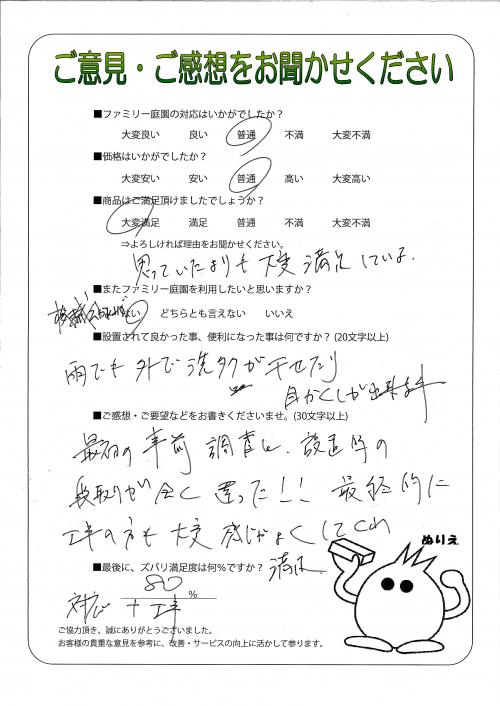 ご意見・ご感想をお聞かせください
■ファミリー庭園の対応はいかがでしたか？
大変良い 良い 普通 不満 大変不満
■価格はいかがでしたか？
大変安い 安い 普通 高い 大変高い
■商品はご満足頂けましたでしょうか？
大変満足 満足 普通 不満 大変不満
⇒よろしければ理由をお聞かせください。
思っていたよりも大変満足している。
■またファミリー庭園を利用したいと思いますか？
はい どちらとも言えない いいえ
■設置されて良かった事、便利になった事は何ですか？ (20文字以上)
雨でも外で洗タクが干せたり
目かくしが出来ます
■ご感想・ご要望などをお書きくださいませ。(30文字以上)
最初の事前調査と、設置時の
段取りが全く違った!! 最終的に
工事の方も大変感じがよくしてくれ
満足
ぬりえ
■最後に、ズバリ満足度は何％ですか？
80 %
対応 + 工事
ご協力頂き、誠にありがとうございました。
お客様の貴重な意見を参考に、改善・サービスの向上に活かして参ります。